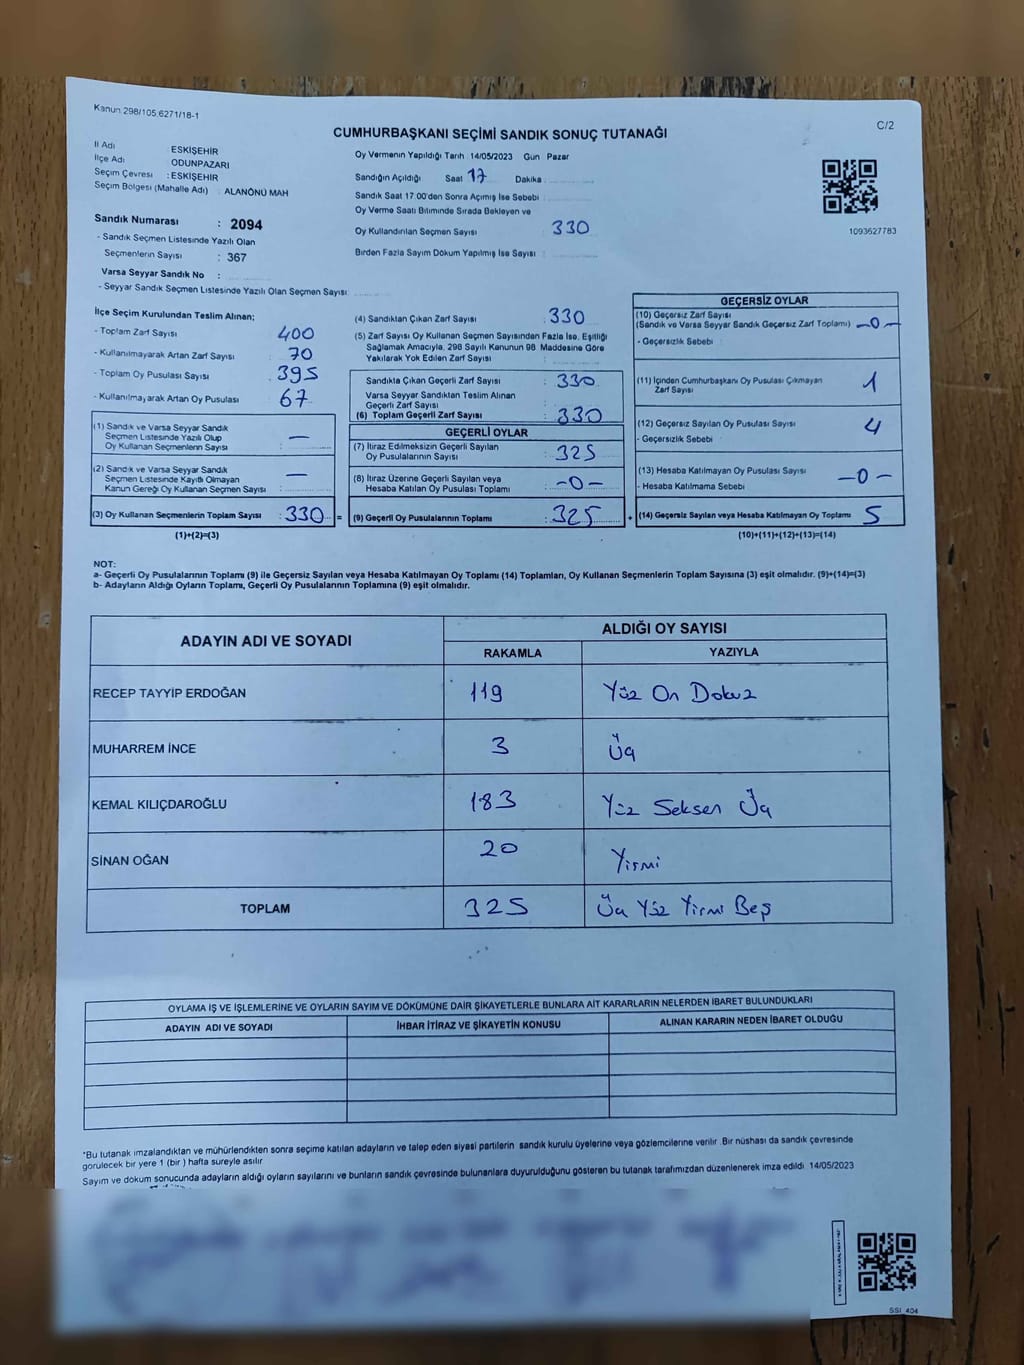 Kanun 298/105,6271/18-1
C/2
CUMHURBAŞKANI SEÇİMİ SANDIK SONUÇ TUTANAĞI
İl Adı ESKİŞEHİR
İlçe Adı ODUNPAZARI
Seçim Çevresi : ESKİŞEHİR
Seçim Bölgesi (Mahalle Adı) : ALANÖNÜ MAH
Sandık Numarası : 2094
- Sandık Seçmen Listesinde Yazılı Olan
Seçmenlerin Sayısı : 367
Varsa Seyyar Sandık No :
- Seyyar Sandık Seçmen Listesinde Yazılı Olan Seçmen Sayısı:
Oy Vermenin Yapıldığı Tarih 14/05/2023 Gün Pazar
Sandığın Açıldığı Saat 17 Dakika :
Sandık Saat 17 00'den Sonra Açımış İse Sebebi :
Oy Verme Saati Bitiminde Sırada Bekleyen ve
Oy Kullandırılan Seçmen Sayısı : 330
Birden Fazla Sayım Döküm Yapılmış İse Sayısı :
1093627783
İlçe Seçim Kurulundan Teslim Alınan;
- Toplam Zarf Sayısı : 400
- Kullanılmayarak Artan Zarf Sayısı : 70
- Toplam Oy Pusulası Sayısı : 395
- Kullanılmayarak Artan Oy Pusulası : 67
(1) Sandık ve Varsa Seyyar Sandık
Seçmen Listesinde Yazılı Olup
Oy Kullanan Seçmenlerin Sayısı : —
(2) Sandık ve Varsa Seyyar Sandık
Seçmen Listesinde Kayıtlı Olmayan
Kanun Gereği Oy Kullanan Seçmen Sayısı : —
(3) Oy Kullanan Seçmenlerin Toplam Sayısı : 330 =
(1)+(2)=(3)
(4) Sandıktan Çıkan Zarf Sayısı : 330
(5) Zarf Sayısı Oy Kullanan Seçmen Sayısından Fazla İse, Eşitliği
Sağlamak Amacıyla, 298 Sayılı Kanunun 98. Maddesine Göre
Yakılarak Yok Edilen Zarf Sayısı :
Sandıkta Çıkan Geçerli Zarf Sayısı : 330
Varsa Seyyar Sandıktan Teslim Alınan
Geçerli Zarf Sayısı :
(6) Toplam Geçerli Zarf Sayısı : 330
GEÇERLİ OYLAR
(7) İtiraz Edilmeksizin Geçerli Sayılan
Oy Pusulalarının Sayısı : 325
(8) İtiraz Üzerine Geçerli Sayılan veya
Hesaba Katılan Oy Pusulası Toplamı : -0-
(9) Geçerli Oy Pusulalarının Toplamı : 325 +
GEÇERSİZ OYLAR
(10) Geçersiz Zarf Sayısı
(Sandık ve Varsa Seyyar Sandık Geçersiz Zarf Toplamı) -0-
- Geçersizlik Sebebi :
(11) İçinden Cumhurbaşkanı Oy Pusulası Çıkmayan
Zarf Sayısı 1
(12) Geçersiz Sayılan Oy Pusulası Sayısı : 4
- Geçersizlik Sebebi :
(13) Hesaba Katılmayan Oy Pusulası Sayısı : -0-
- Hesaba Katılmama Sebebi :
(14) Geçersiz Sayılan veya Hesaba Katılmayan Oy Toplamı : 5
(10)+(11)+(12)+(13)=(14)
NOT:
a- Geçerli Oy Pusulalarının Toplamı (9) ile Geçersiz Sayılan veya Hesaba Katılmayan Oy Toplamı (14) Toplamları, Oy Kullanan Seçmenlerin Toplam Sayısına (3) eşit olmalıdır. (9)+(14)=(3)
b- Adayların Aldığı Oyların Toplamı, Geçerli Oy Pusulalarının Toplamına (9) eşit olmalıdır.
ADAYIN ADI VE SOYADI ALDIĞI OY SAYISI
RAKAMLA YAZIYLA
RECEP TAYYİP ERDOĞAN 119 Yüz On Dokuz
MUHARREM İNCE 3 Üç
KEMAL KILIÇDAROĞLU 183 Yüz Seksen Üç
SİNAN OĞAN 20 Yirmi
TOPLAM 325 Üç Yüz Yirmi Beş
OYLAMA İŞ VE İŞLEMLERİNE VE OYLARIN SAYIM VE DÖKÜMÜNE DAİR ŞİKAYETLERLE BUNLARA AİT KARARLARIN NELERDEN İBARET BULUNDUKLARI
ADAYIN ADI VE SOYADI İHBAR İTİRAZ VE ŞİKAYETİN KONUSU ALINAN KARARIN NEDEN İBARET OLDUĞU
*Bu tutanak imzalandıktan ve mühürlendikten sonra seçime katılan adayların ve talep eden siyasi partilerin sandık kurulu üyelerine veya gözlemcilerine verilir. Bir nüshası da sandık çevresinde
görülecek bir yere 1 (bir ) hafta süreyle asılır
Sayım ve döküm sonucunda adayların aldığı oyların sayılarını ve bunların sandık çevresinde bulunanlara duyurulduğunu gösteren bu tutanak tarafımızdan düzenlenerek imza edildi 14/05/2023
SSI_404